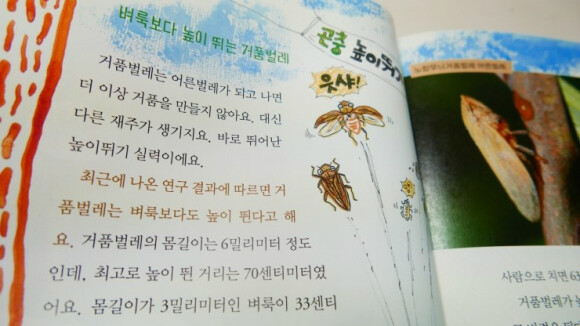 벼룩보다 높이 뛰는 거품벌레
거품벌레는 어른벌레가 되고 나면
더 이상 거품을 만들지 않아요. 대신
다른 재주가 생기지요. 바로 뛰어난
높이뛰기 실력이에요.
최근에 나온 연구 결과에 따르면 거
품벌레는 벼룩보다도 높이 뛴다고 해
요. 거품벌레의 몸길이는 6밀리미터 정도
인데, 최고로 높이 뛴 거리는 70센티미터였
어요. 몸길이가 3밀리미터인 벼룩이 33센티
곤충 높이뛰기
으샤!
사람으로 치면
거품벌레가 높